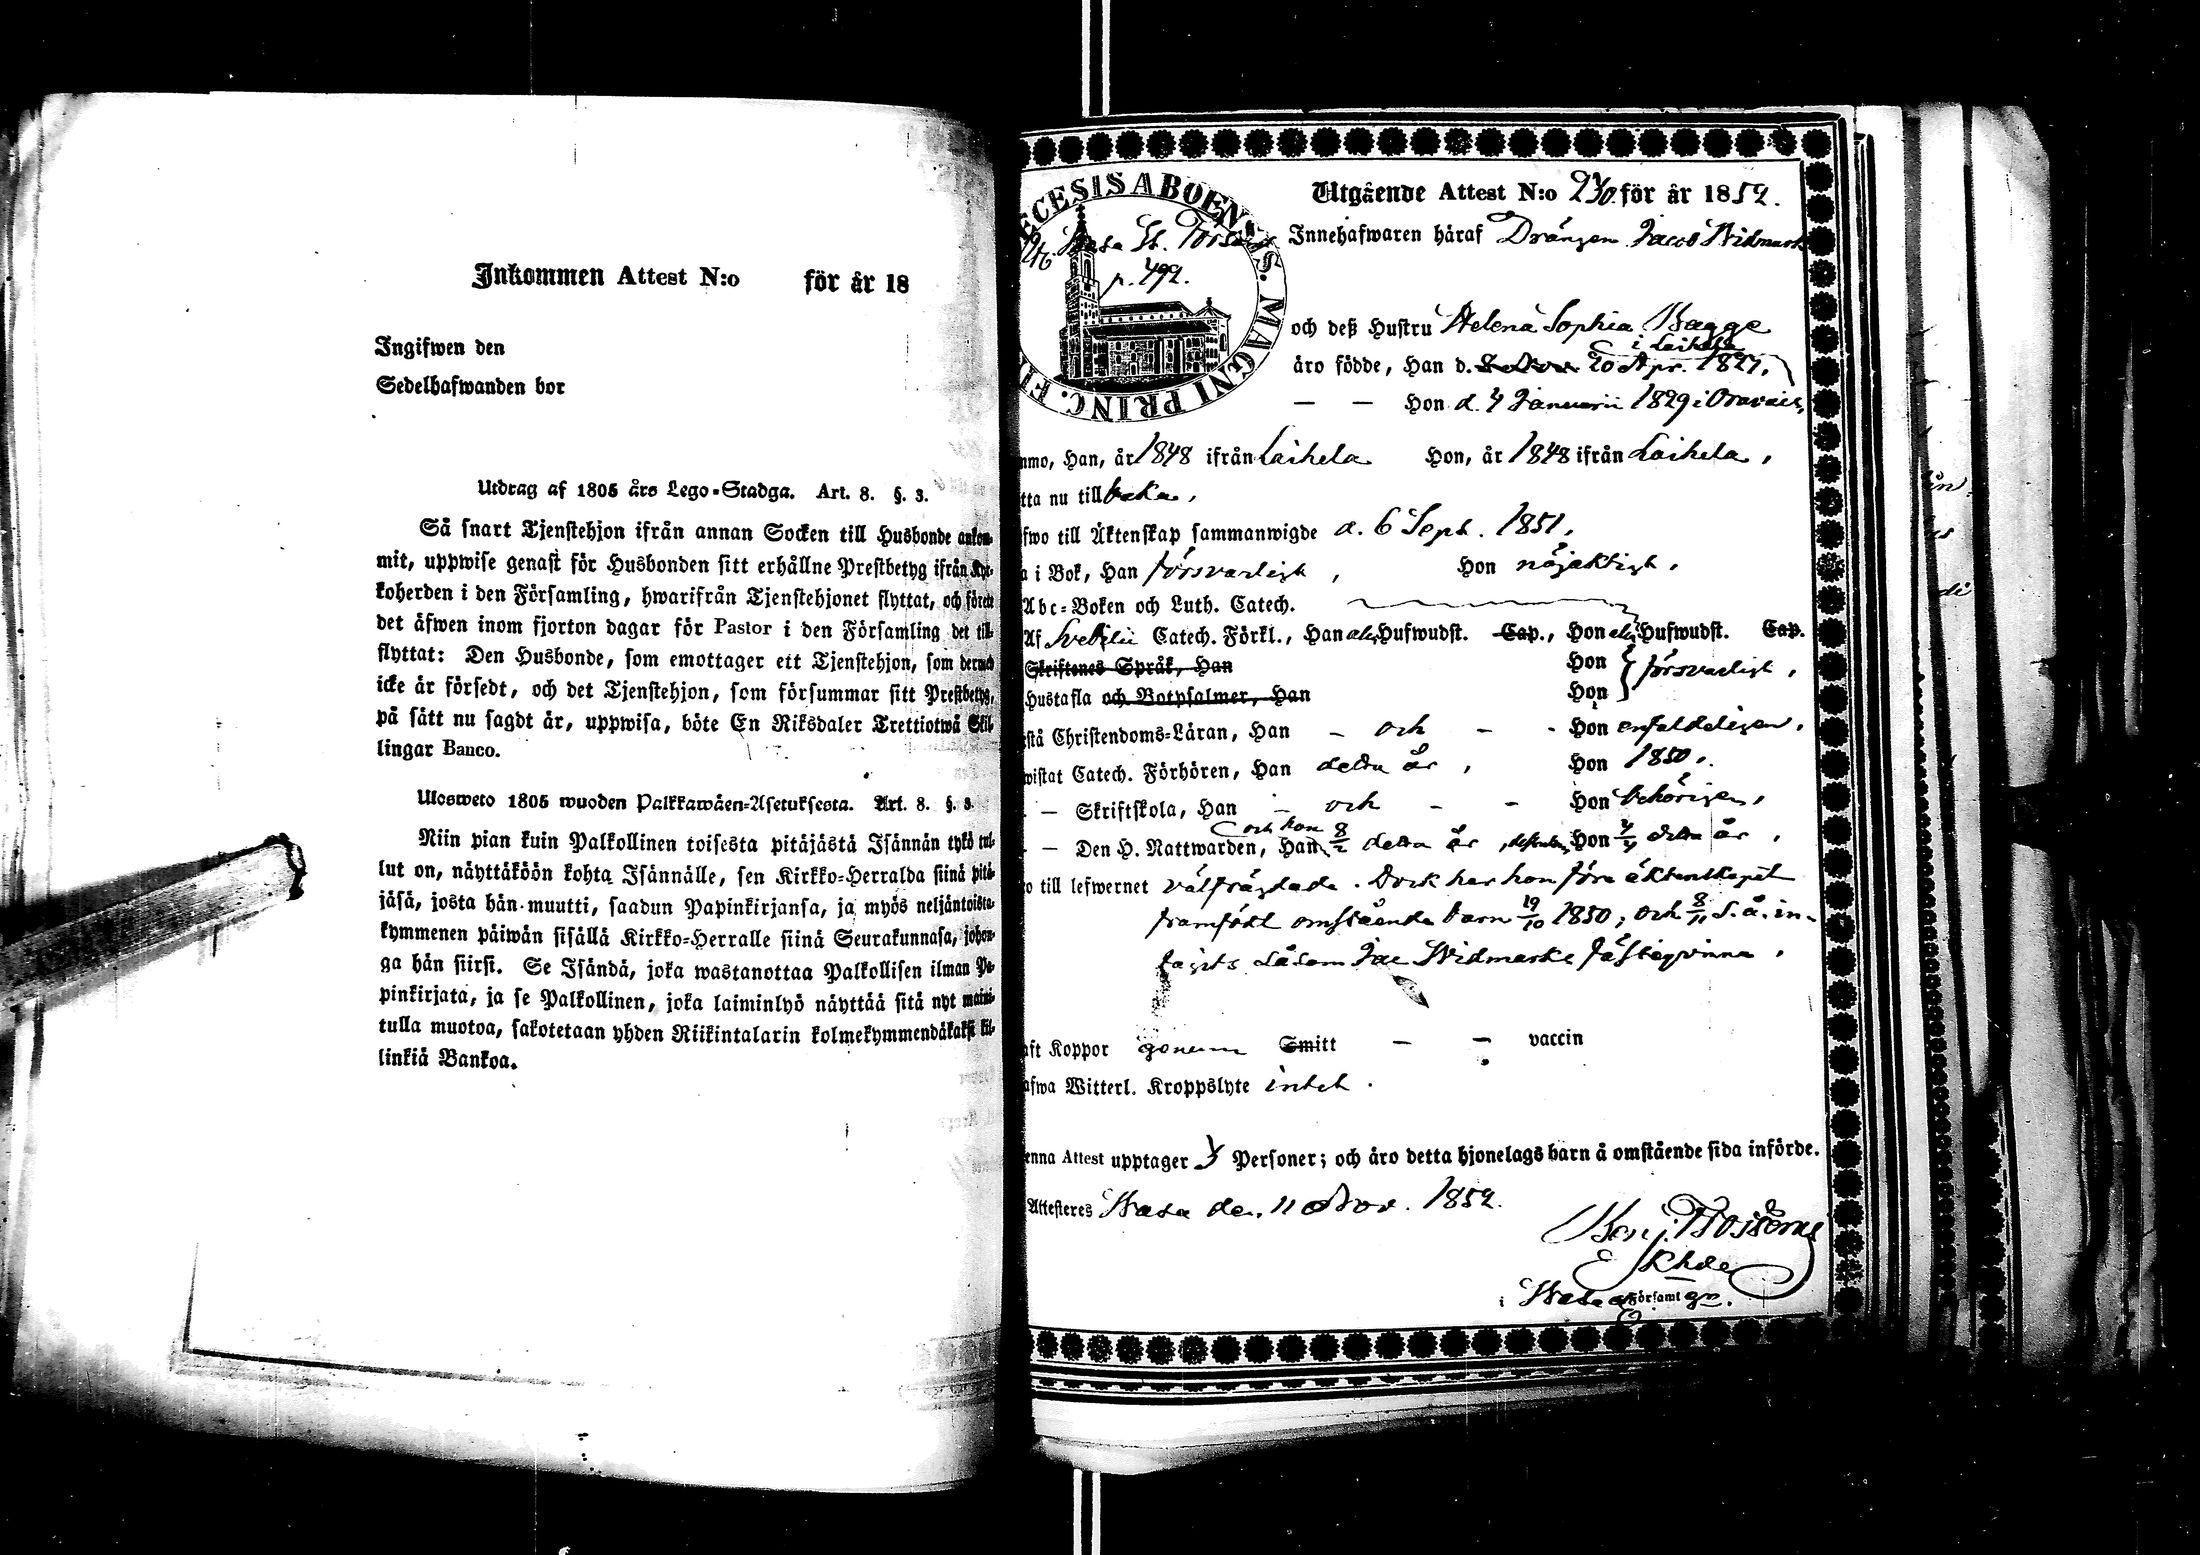 Inkommen Attest N:o för år 18
Ingifwen den
Sedelhafwanden bor
Utdrag af 1805 års Lego-Stadga. Art. 8. §. 3.
Så snart Tjenstehjon ifrån annan Socken till Husbonde ankom-
mit, uppwise genast för Husbonden sitt erhållne Prestbetyg ifrån Kyr-
koherden i den Församling, hwarifrån Tjenstehjonet flyttat, och förete
det äfwen inom fjorton dagar för Pastor i den Församling det till-
flyttat: Den Husbonde, som emottager ett Tjenstehjon, som dermed
icke är försedt, och det Tjenstehjon, som försummar sitt Prestbetyg,
på sätt nu sagdt är, uppwisa, böte En Riksdaler Trettiotwå Skil-
lingar Banco.
Ulosweto 1805 wuoden Palkkawäen-Asetuksesta. Art. 8. §. 3.
Niin pian kuin Palkollinen toisesta pitäjästä Isännän tykö tul-
lut on, näyttäköön kohta Isännälle, sen Kirkko-Herralda siinä pitä-
jäsä, josta hän muutti, saadun Papinkirjansa, ja myös neljäntoista-
kymmenen päiwän sisällä Kirkko-Herralle siinä Seurakunnasa, johon-
ga hän siirsi. Se Isändä, joka wastanottaa Palkollisen ilman Pa-
pinkirjata, ja se Palkollinen, joka laiminlyö näyttää sitä nyt maini-
tulla muotoa, sakotetaan yhden Riikintalarin kolmekymmendäkaksi kil-
linkiä Bankoa.
ECESIS ABOENS. MAGNI PRINC. FI
Wasa St. Församl.
p. 492.
Utgående Attest N:o 240. för år 1852.
Innehafwaren häraf Drängen Jacob Widmark
och deß Hustru Helena Sophia Bagge
i Laihela
äro födde, Han d. 20 Apr. 1827.
— — Hon d. 4 Januarii 1829 i Oravais,
mmo, Han, år 1848 ifrån Laihela Hon, år 1848 ifrån Laihela,
tta nu tillbaka,
fwo till Äktenskap sammanwigde d. 6 Sept. 1851,
a i Bok, Han försvarligt, Hon nöjaktigt,
Abc-Boken och Luth. Catech.
Af Svebilii Catech. Förkl., Han alla Hufwudst. Cap., Hon alla Hufwudst. Cap.
Skriftenes Språk, Han Hon försvarligt,
Hustafla och Botpsalmer, Han Hon
stå Christendoms-Läran, Han - och - - Hon enfaldeligen,
wistat Catech. Förhören, Han detta år, Hon 1850,
— Skriftskola, Han - och - - Hon behörigen,
och hon
— Den H. Nattwarden, Han 8/2 detta år, Hon detta år,
o till lefwernet välfrägdade. Dock har hon före äktenskapet
framfödt omstående barn 19/10 1850, och 8/11 s. å. in-
tagits såsom Jac Widmarks fästeqvinna,
aft Koppor genom Smitt — — vaccin
afwa Witterl. Kroppslyte intet.
enna Attest upptager 3 Personer; och äro detta hjonelags barn å omstående sida införde.
Attesteres Wasa den 11 Nov. 1852.
Benj.
Khde
i Wasa Församl gn.